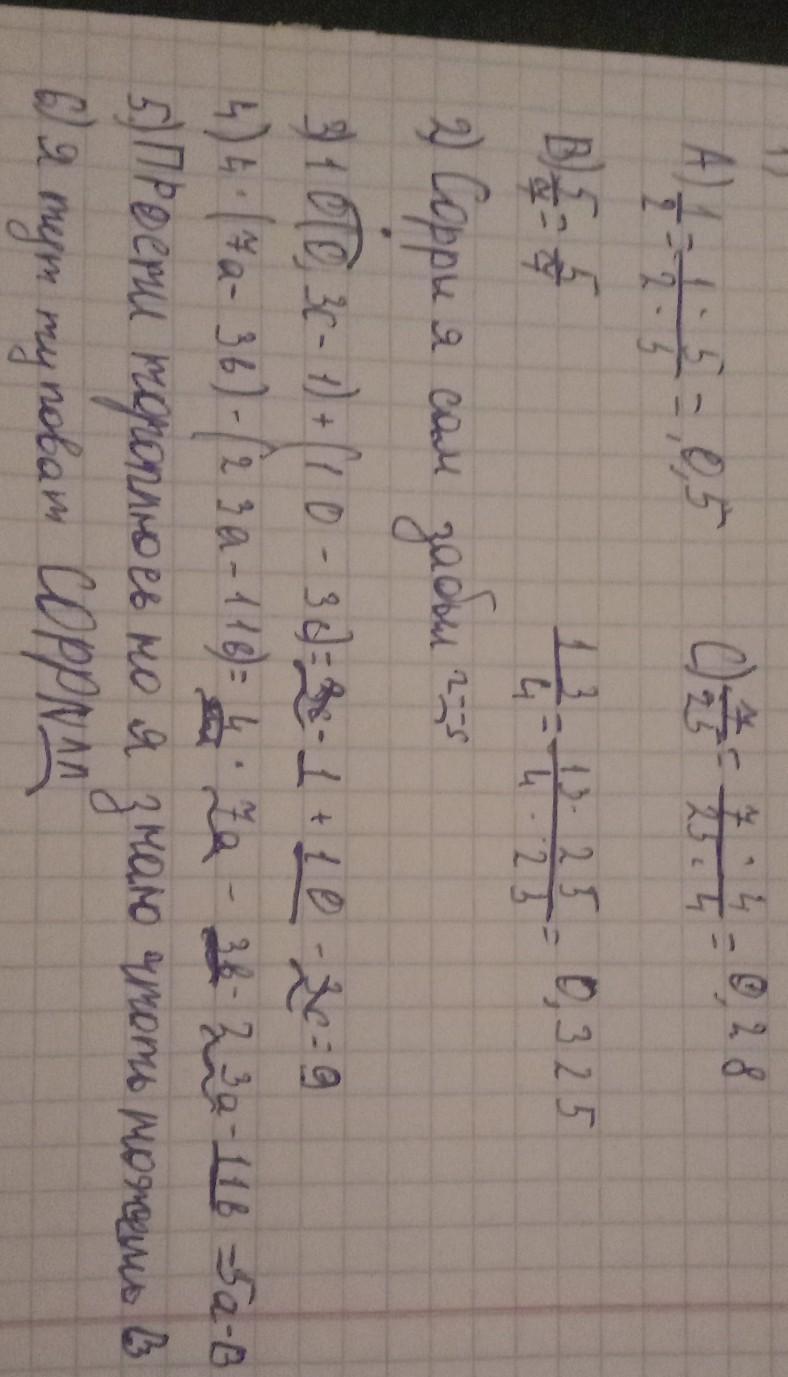 1)
A) 1/2 = 1·5/2·5 = 0,5
C) 7/25 = 7·4/25·4 = 0,28
B) 5/7 = 5/7
13/4 = 13·25/4·25 = 0,325
2) Сорри я сам забыл
3) 10(0,3c - 1) + (10 - 3c) = 3c - 1 + 10 - 3c = 9
4) 4·(7a - 3b) - (23a - 11b) = 4·7a - 3b - 23a - 11b = 5a - B
5) Прости но я знаю
6) Я тут туповат СОРРИ